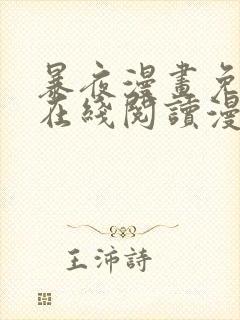 暴夜漫畫免
在綫閱讀漫
王沛詩